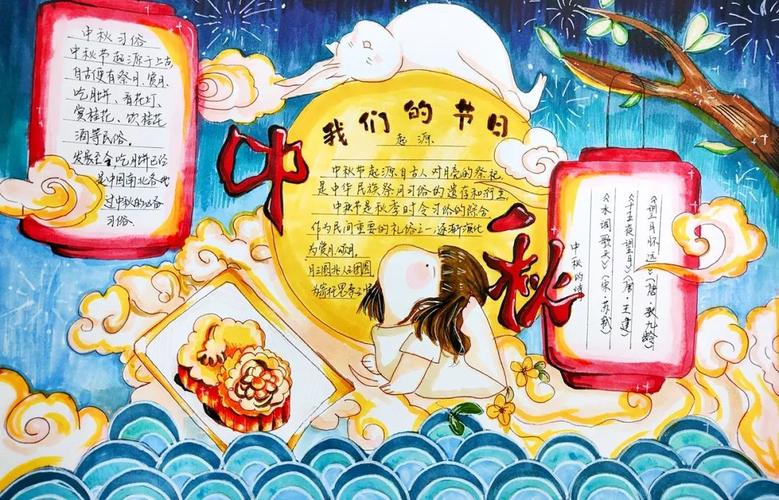 中秋习俗
中秋节起源于上古,
自古便有祭月、赏月、
吃月饼、看花灯、
赏桂花、饮桂花
酒等民俗。
发展至今吃月饼已经
是中国南北各地
过中秋的必备
习俗.
中秋
我们的节日
起源
中秋节起源自古人对月亮的祭祀,
是中华民族祭月习俗的遗存和衍生.
中秋节是秋季时令习俗的综合
作为民间重要的礼俗之一逐渐演化
为赏月、颂月.
月之圆兆人之团圆
为寄托思念之情
《望月怀远》(唐·张九龄)
《十五夜望月》(唐·王建)
《水调歌头》(宋·苏轼)
中秋的诗